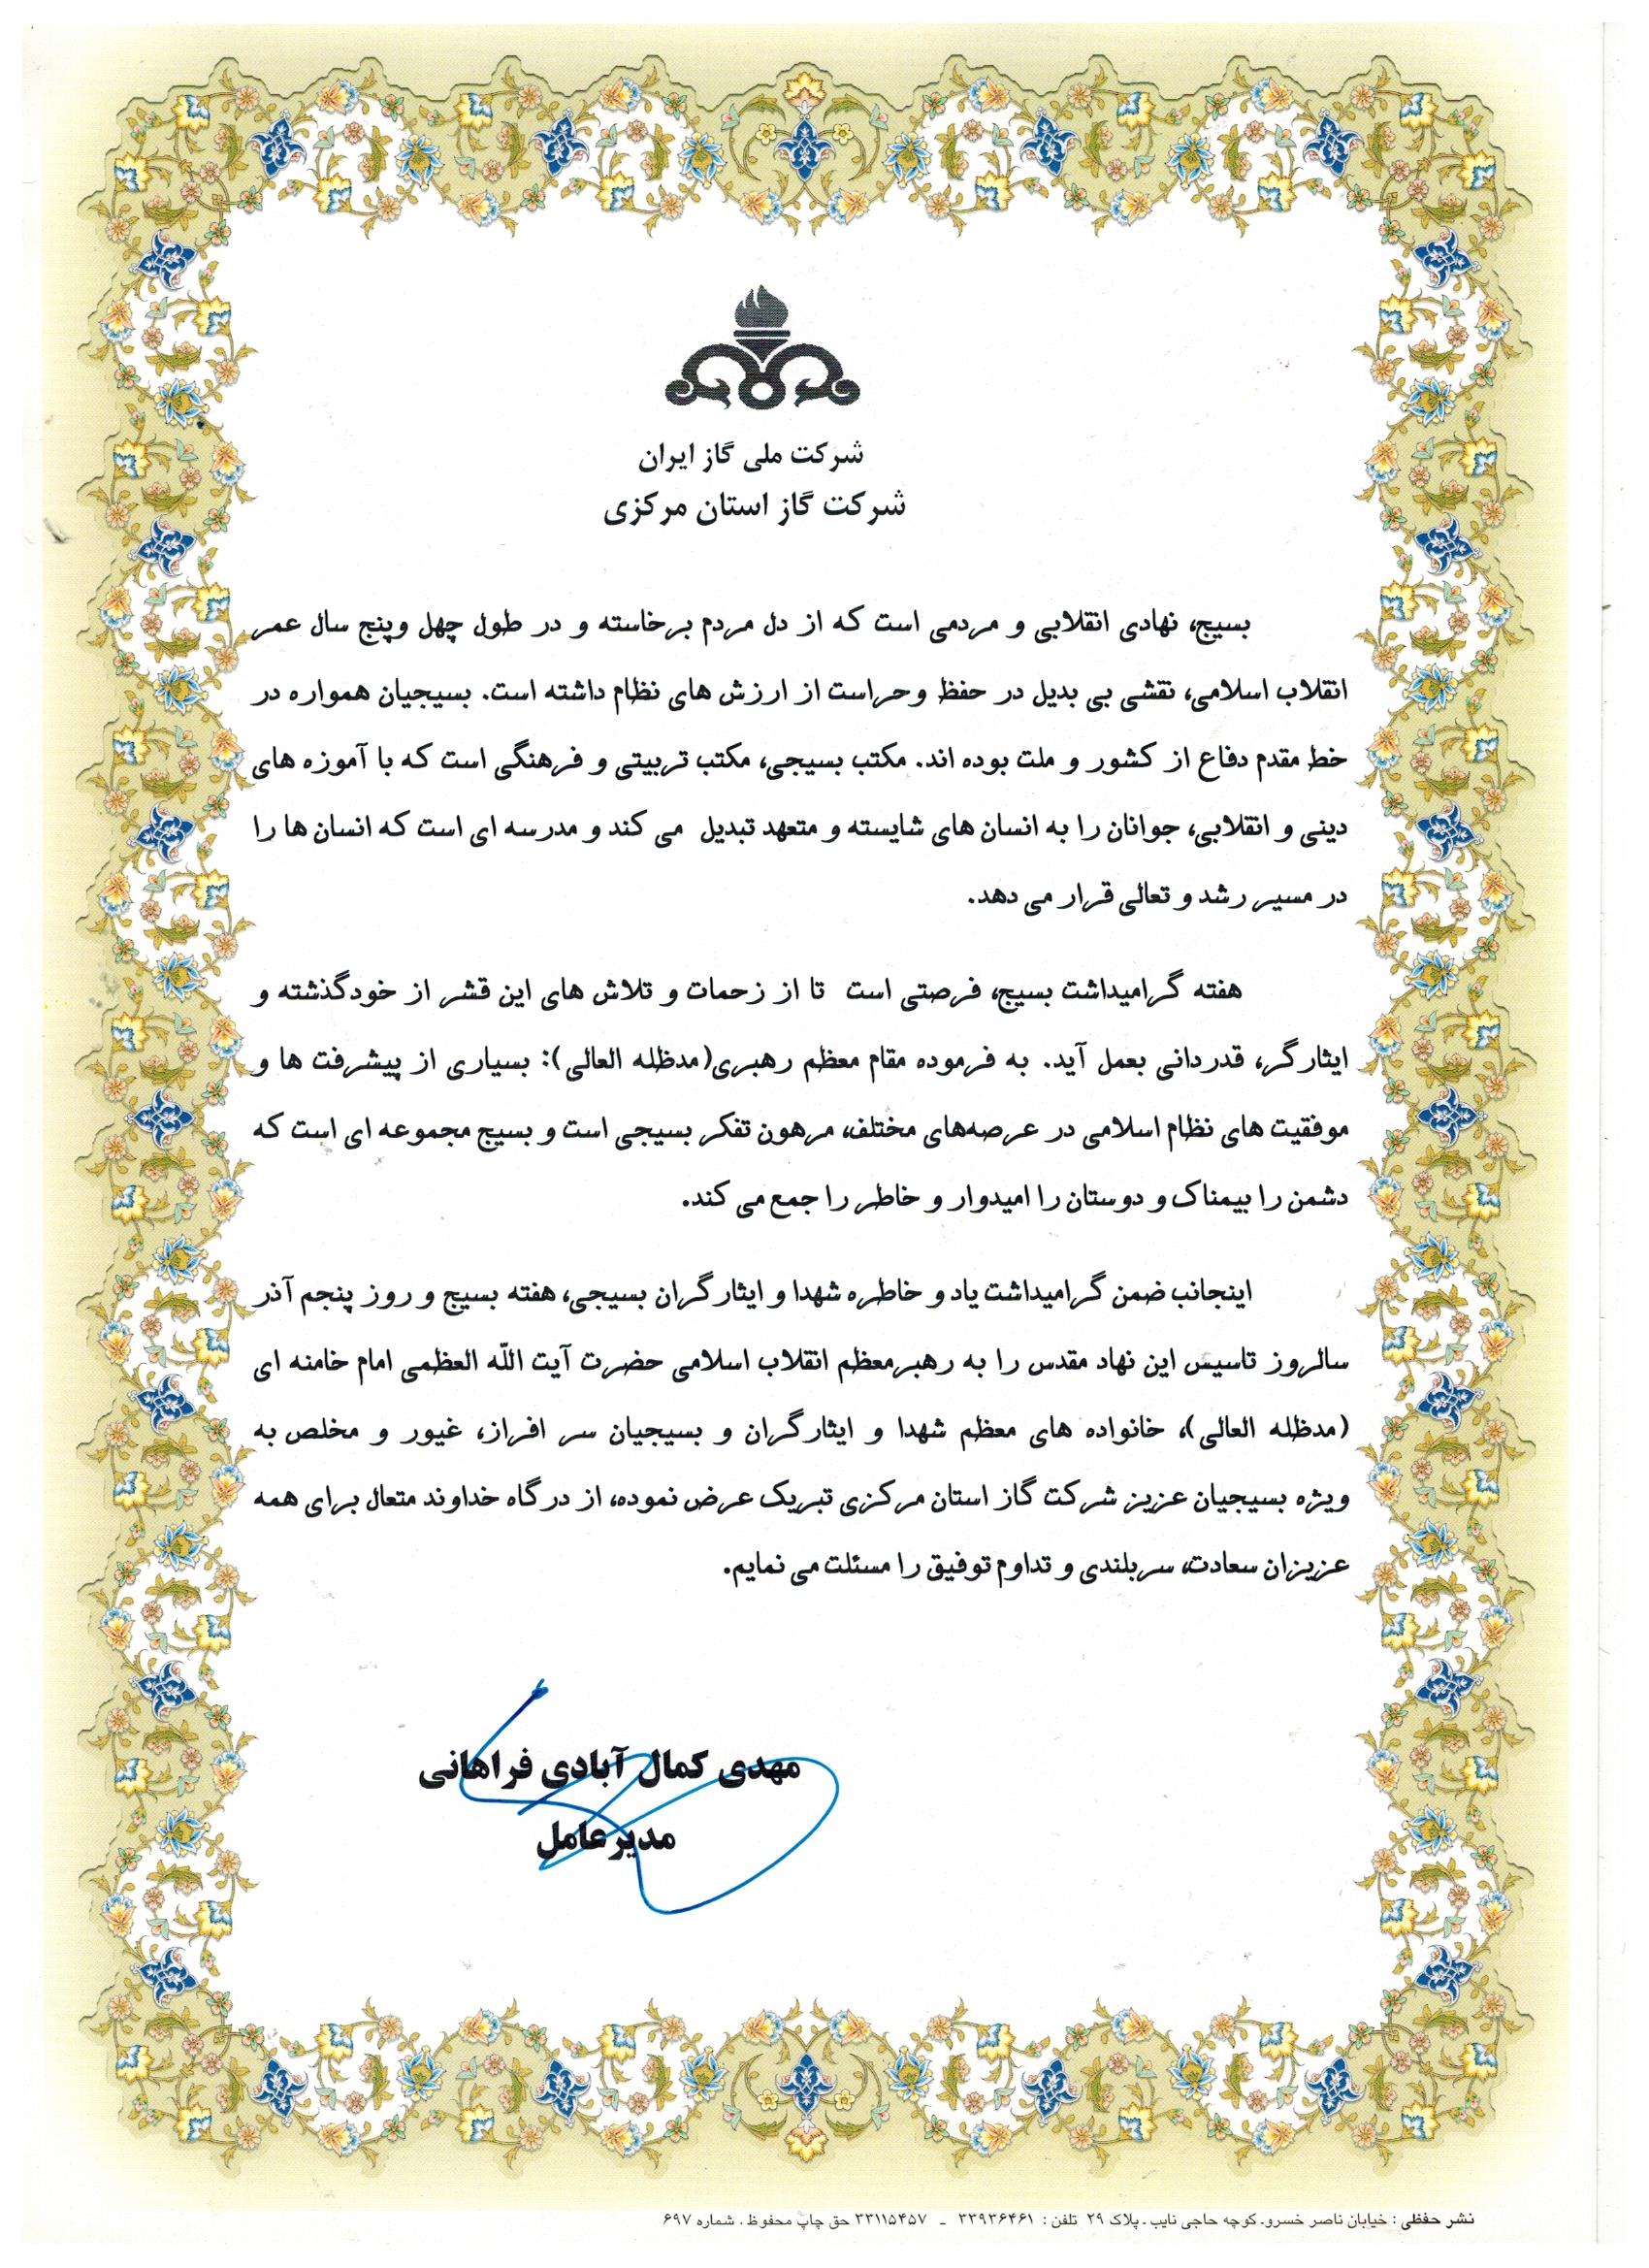 شرکت ملی گاز ایران
شرکت گاز استان مرکزی
بسیج، نهادی انقلابی و مردمی است که از دل مردم برخاسته و در طول چهل وپنج سال عمر
انقلاب اسلامی، نقشی بی بدیل در حفظ وحراست از ارزش های نظام داشته است. بسیجیان همواره در
خط مقدم دفاع از کشور و ملت بوده اند. مکتب بسیجی، مکتب تربیتی و فرهنگی است که با آموزه های
دینی و انقلابی، جوانان را به انسان های شایسته و متعهد تبدیل می کند و مدرسه ای است که انسان ها را
در مسیر رشد و تعالی قرار می دهد.
هفته گرامیداشت بسیج، فرصتی است تا از زحمات و تلاش های این قشر از خودگذشته و
ایثارگر، قدردانی بعمل آید. به فرموده مقام معظم رهبری(مدظله العالی): بسیاری از پیشرفت ها و
موفقیت های نظام اسلامی در عرصه‌های مختلف، مرهون تفکر بسیجی است و بسیج مجموعه ای است که
دشمن را بیمناک و دوستان را امیدوار و خاطر را جمع می کند.
اینجانب ضمن گرامیداشت یاد و خاطره شهدا و ایثارگران بسیجی، هفته بسیج و روز پنجم آذر
سالروز تاسیس این نهاد مقدس را به رهبرمعظم انقلاب اسلامی حضرت آیت الله العظمی امام خامنه ای
(مدظله العالی)، خانواده های معظم شهدا و ایثارگران و بسیجیان سر افراز، غیور و مخلص به
ویژه بسیجیان عزیز شرکت گاز استان مرکزی تبریک عرض نموده، از درگاه خداوند متعال برای همه
عزیزان سعادت، سربلندی و تداوم توفیق را مسئلت می نمایم.
مهدی کمال آبادی فراهانی
مدیرعامل
نشر حفظی : خیابان ناصر خسرو. کوچه حاجی نایب . پلاک ۲۹ تلفن : ۳۳۹۳۶۴۶۱ - ۳۳۱۱۵۴۵۷ حق چاپ محفوظ . شماره ۶۹۷